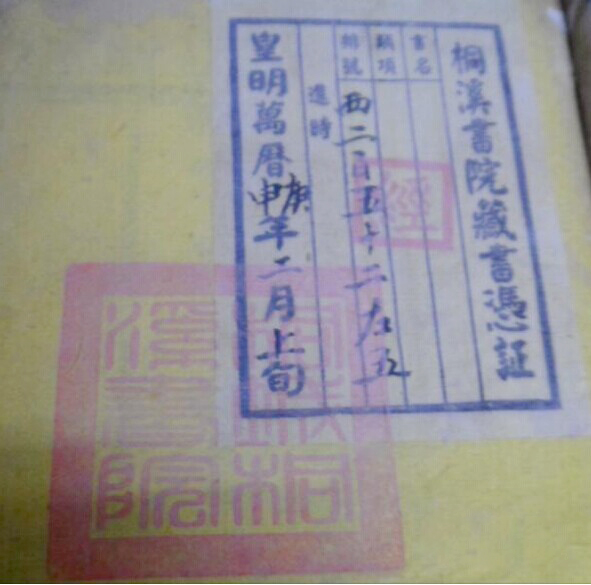 桐溪書院藏書憑証
書名
類項
經
排號
西二百五十二左五
還時
皇明萬曆庚申年二月上旬
桐溪書院